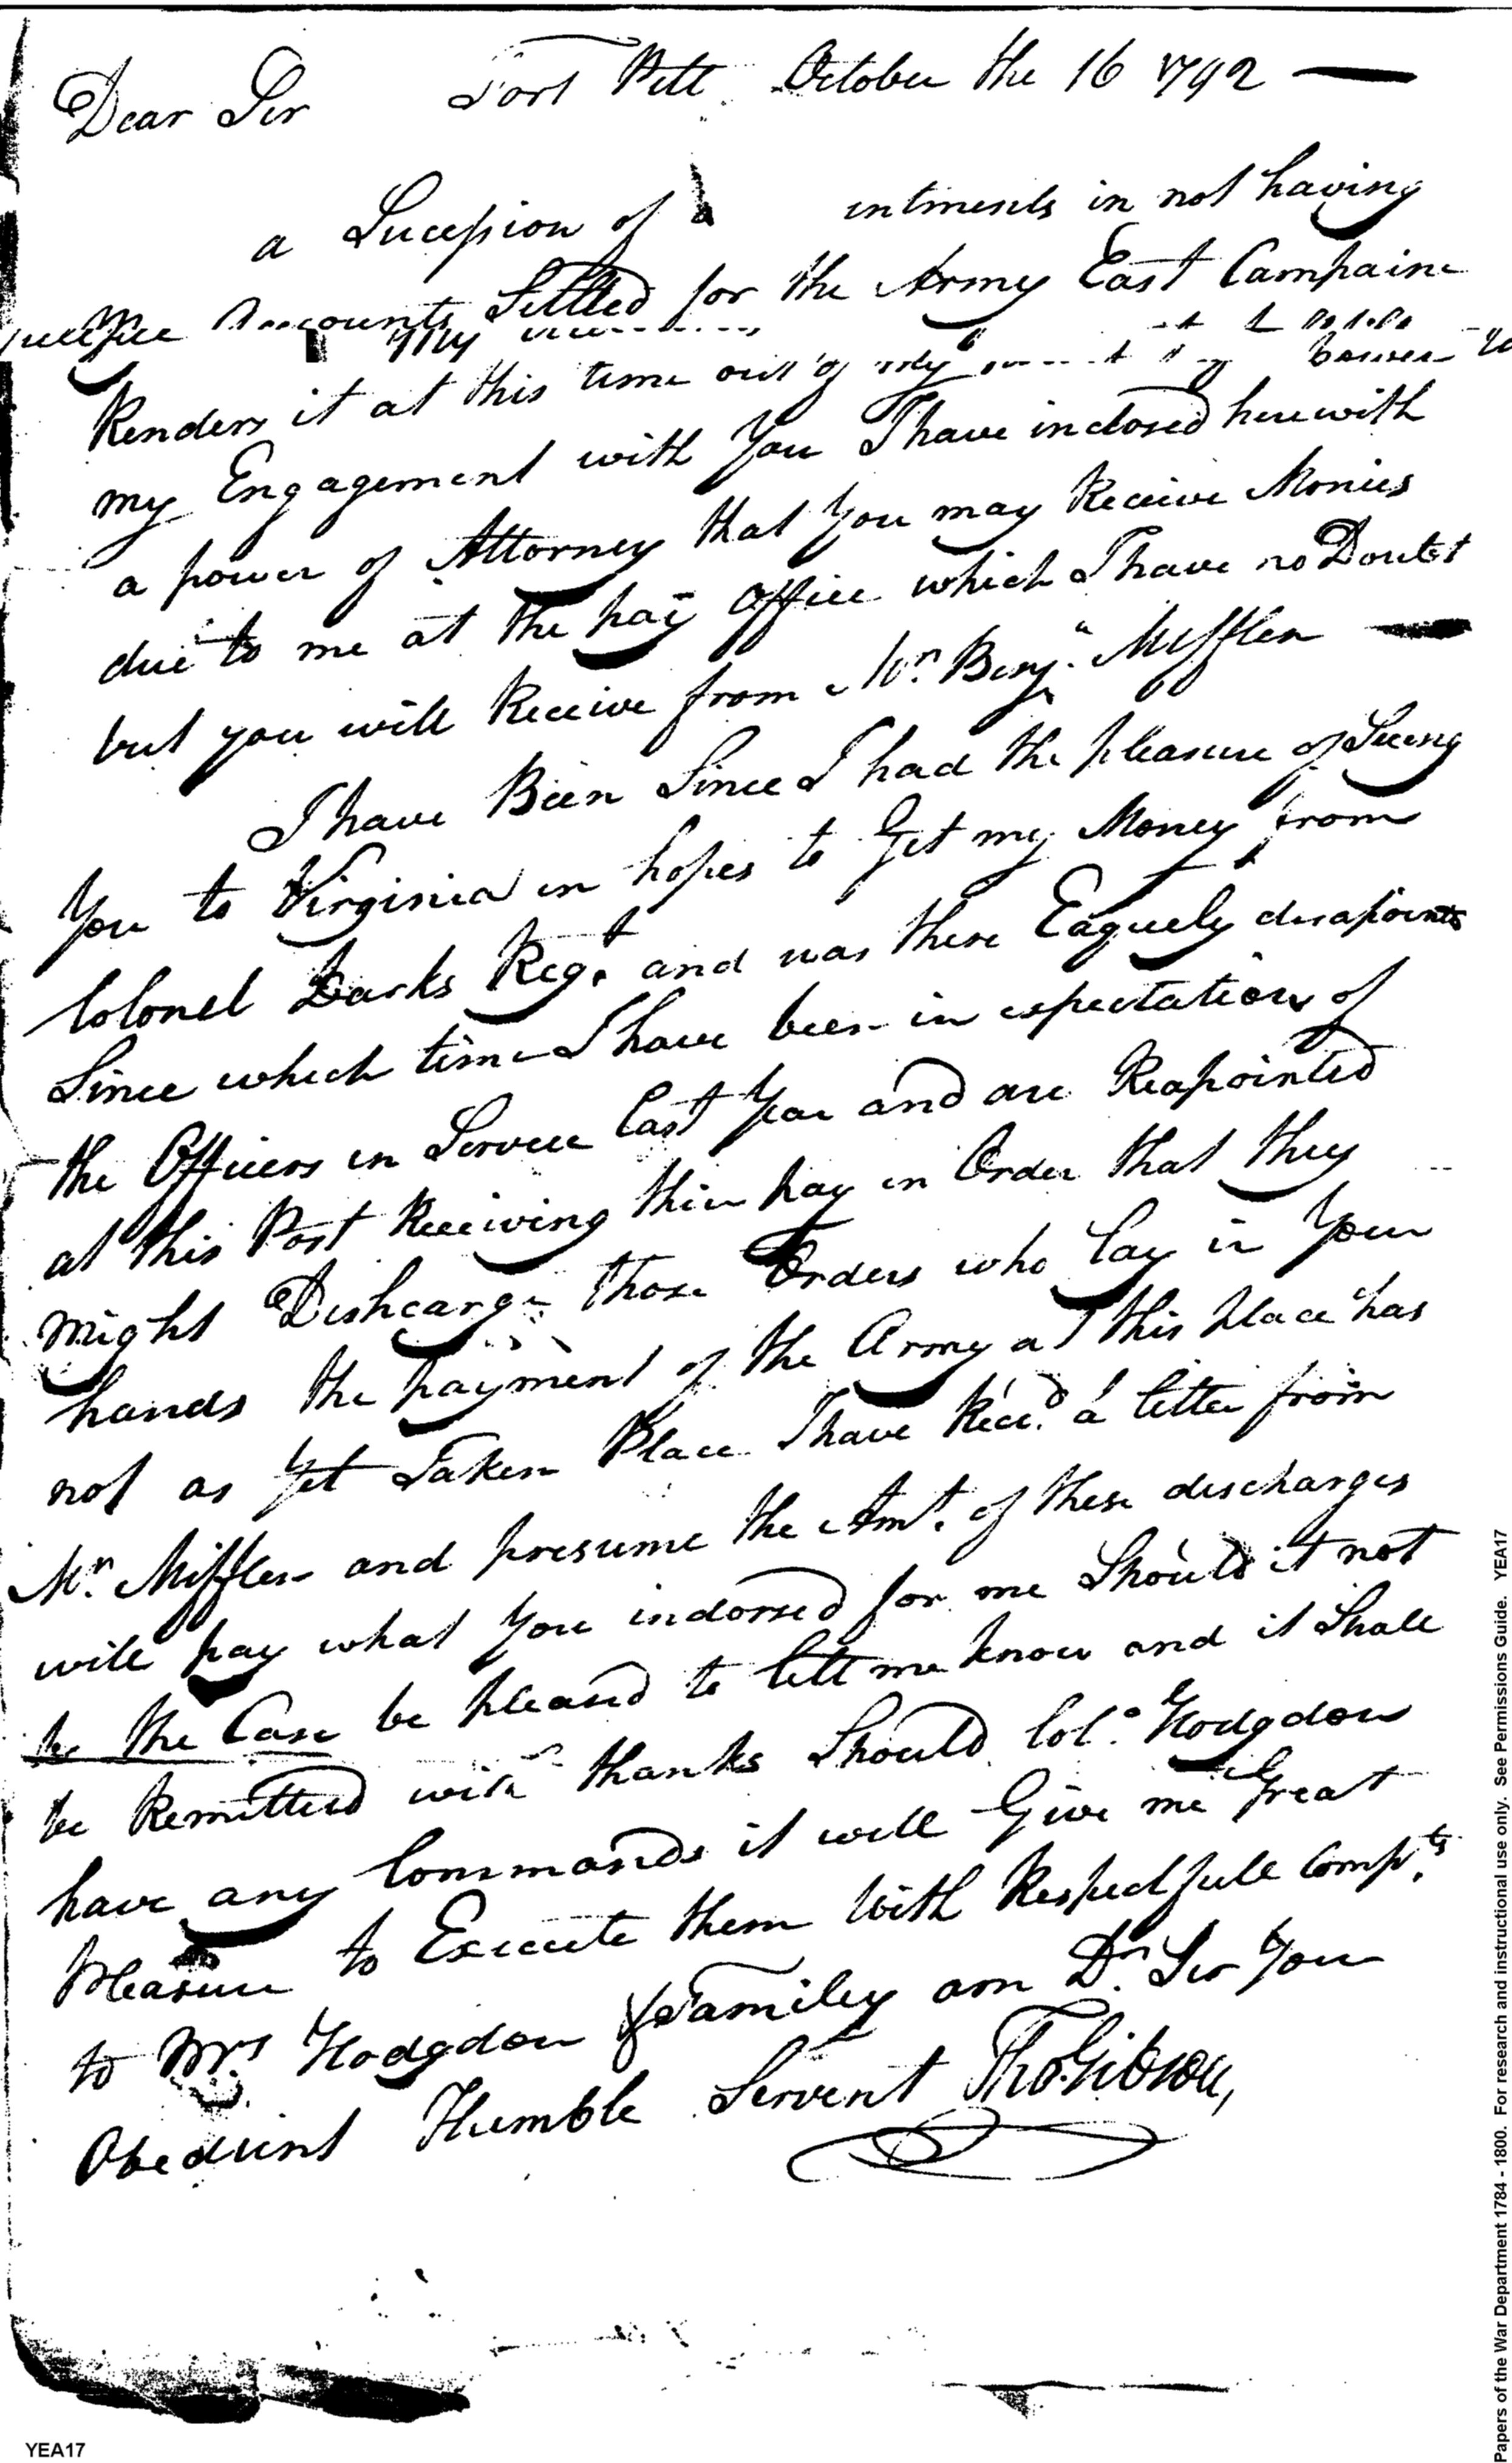 Fort Pitt October the 16 1792
Dear Sir
a Sucession of intments in not having
Accounts Settled for the Army East Campaine
My
Renders it at this time out of my
my Engagement with You I have inclosed herewith
a power of Attorney that You may Receive Monies
due to me at the pay Office which I have no Doubt
but you will Receive from Mr. Benj.n Mifflen
I have Been Since I had the pleasure of Seeing
You to Virginia in hopes to Get my Money from
Colonel Darks Regt. and was there Eaquely disapoint
Since which time I have been in expectation of
the Officers in Service Last Year and are Reapointed
at this Post Receiving thier pay in Order that they
might Dishcarge those Orders who lay in Your
hands the payment of the Army at this place has
not as Yet Taken Place I have Recd. a letter from
Mr. Mifflen and presume the Amt. of these discharges
will pay what You indorsed for me Should it not
be the Case be pleased to lett me know and it Shall
be Remitted with thanks Should Col.o Hodgdon
have any Commands it will Give me Great
Pleasure to Execute them With Respectfull Compts.
to Mrs Hodgdon & Familey am Dr. Sir Your
Obedient Humble Servent Tho Gibson,
YEA17
Papers of the War Department 1784 - 1800. For research and instructional use only. See Permissions Guide. YEA17